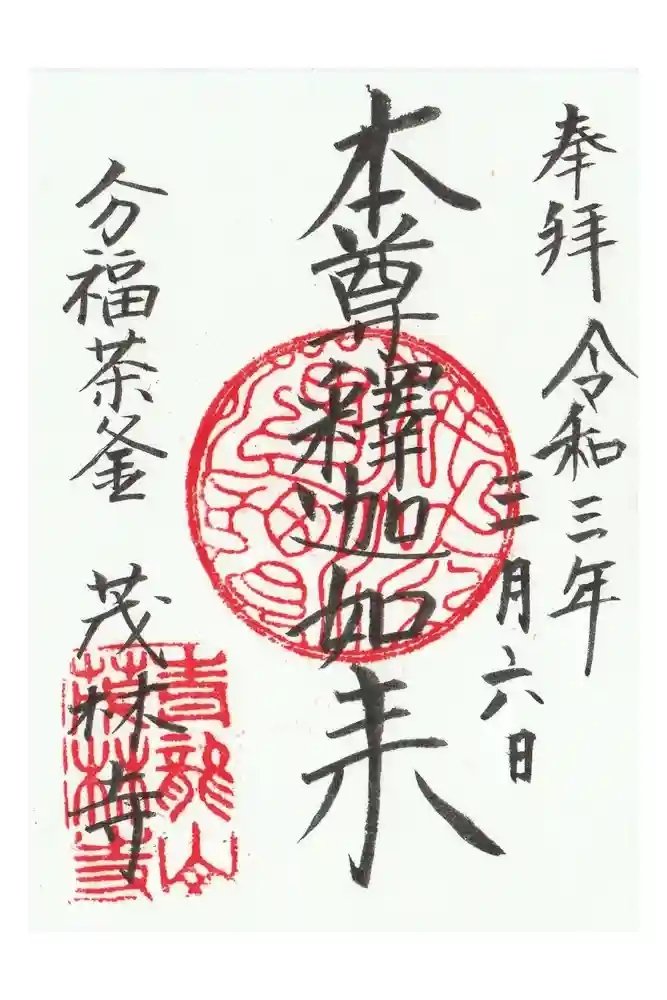 奉拝 令和三年
三月六日
本尊釋迦如来
分福茶釜 茂林寺
青龍山
茂林寺